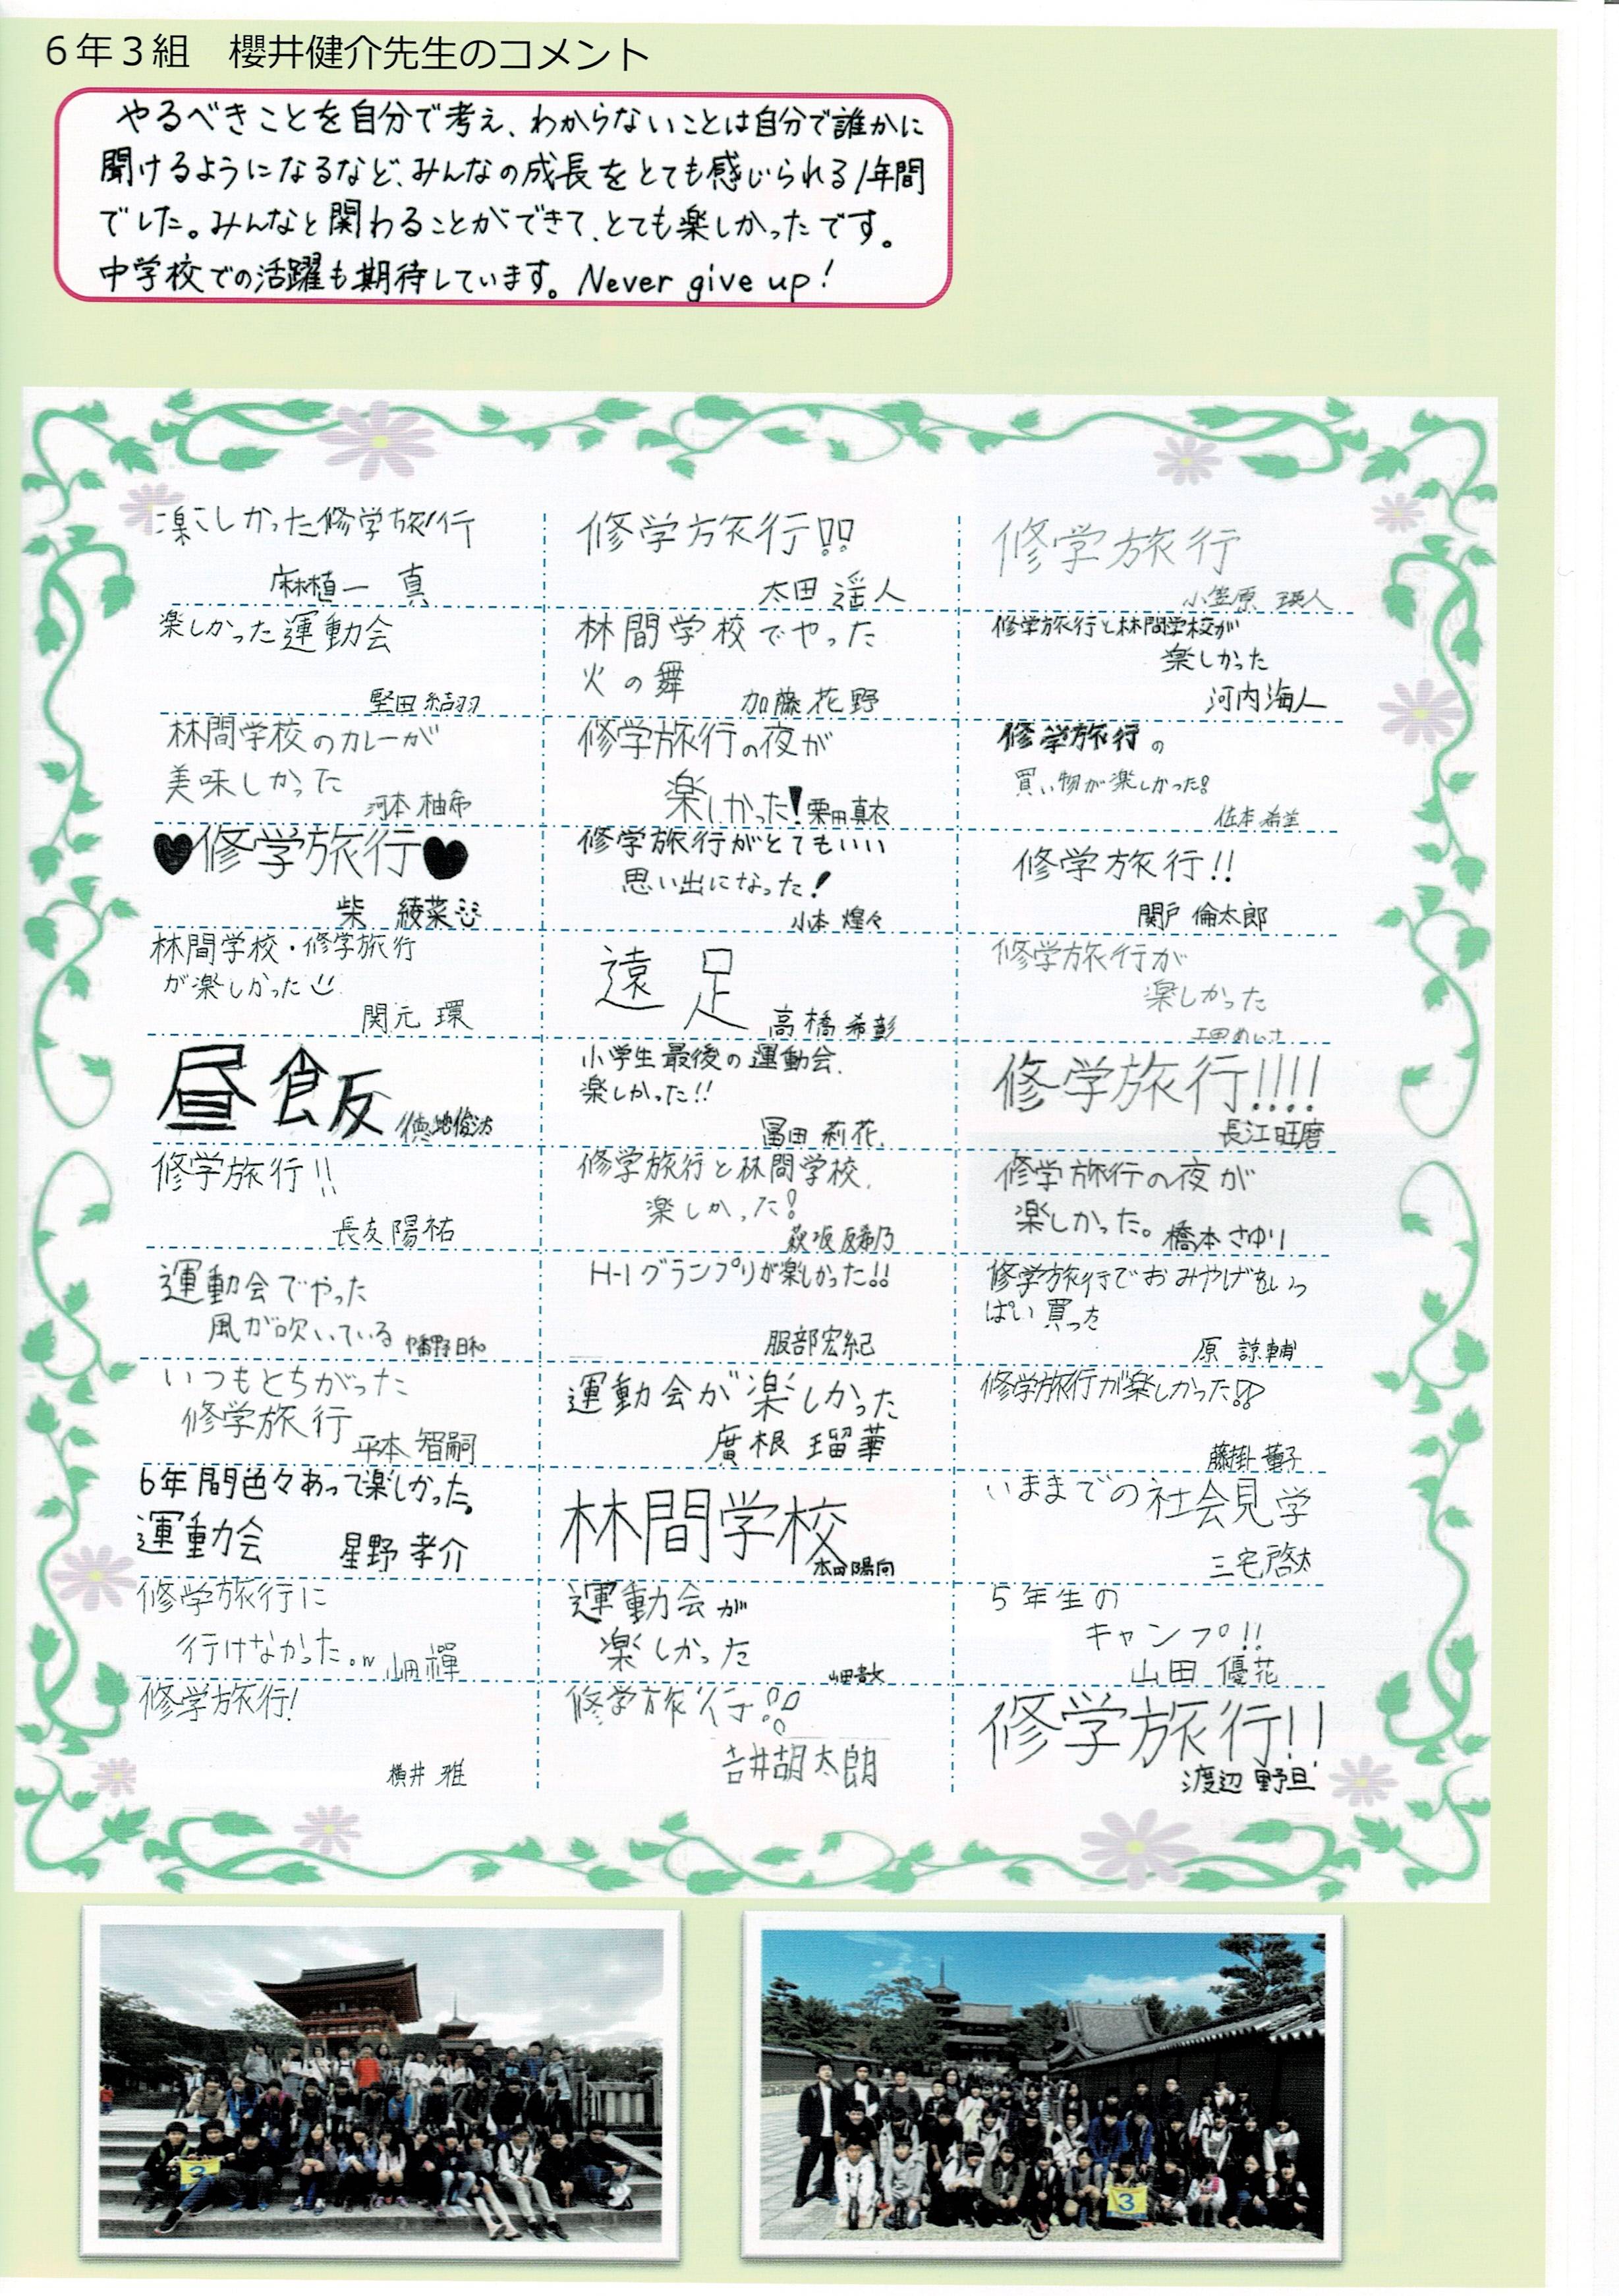 6年3組　櫻井健介先生のコメント
やるべきことを自分で考え、わからないことは自分で誰かに
聞けるようになるなど、みんなの成長をとても感じられる1年間
でした。みんなと関わることができて、とても楽しかったです。
中学校での活躍も期待しています。Never give up!
楽しかった修学旅行
麻植一真
修学旅行!!
太田 遥人
修学旅行
小笠原 瑛人
楽しかった運動会
堅田 結羽
林間学校でやった
火の舞
加藤花野
修学旅行と林間学校が
楽しかった
河内海人
林間学校のカレーが
美味しかった
河本 柚希
修学旅行の夜が
楽しかった!
栗田真衣
修学旅行の
買い物が楽しかった!
佐本
♥修学旅行♥
柴 綾菜
修学旅行がとてもいい
思い出になった!
小本 煌々
修学旅行!!
関戸 倫太郎
林間学校・修学旅行
が楽しかった
関元 環
遠足
高橋 希彰
修学旅行が
楽しかった
昼飯
徳地
小学生最後の運動会
楽しかった!!
冨田 莉花
修学旅行!!!!
長江旺磨
修学旅行!!
長友陽祐
修学旅行と林間学校
楽しかった!
修学旅行の夜が
楽しかった。
橋本さゆり
運動会でやった
風が吹いている
幡野日和
H-1グランプリが楽しかった!!
服部宏紀
修学旅行でおみやげをいっ
ぱい買った
原 諒輔
いつもとちがった
修学旅行
平本 智嗣
運動会が楽しかった
廣根 瑠華
修学旅行が楽しかった!!
藤掛 菫子
6年間色々あって楽しかった。
運動会
星野 孝介
林間学校
本田陽向
いままでの社会見学
三宅啓太
修学旅行に
行けなかった。w
山田 禅
運動会が
楽しかった
山田
5年生の
キャンプ!!
山田 優花
修学旅行!
横井 雅
修学旅行!!
吉井胡太朗
修学旅行!!
渡辺
3
3